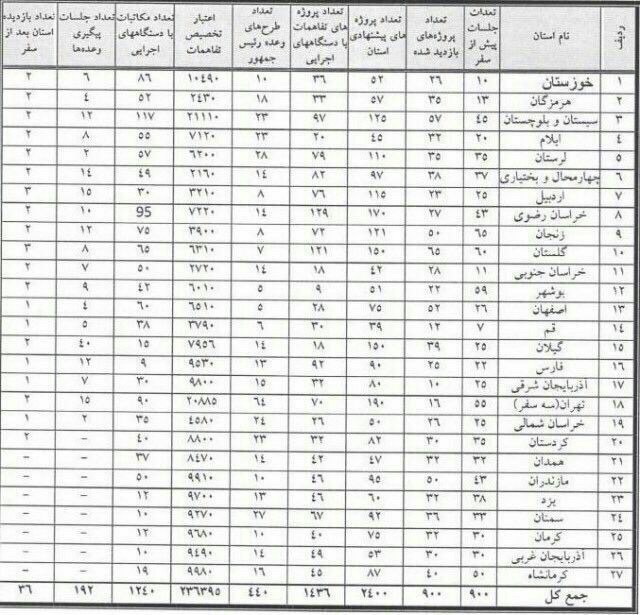 ردیف | نام استان | تعداد جلسات پیش از سفر | تعداد پروژه‌های بازدید شده | تعداد پروژه های پیشنهادی استان | تعداد پروژه های تفاهمات با دستگاههای اجرایی | تعداد طرح‌های وعده رئیس جمهور | اعتبار تخصیص تفاهمات | تعداد مکاتبات با دستگاههای اجرایی | تعداد جلسات پیگیری وعده‌ها | تعداد بازدیده استان بعد از سفر
۱ | خوزستان | ۱۰ | ۲۶ | ۵۲ | ۳۶ | ۱۰ | ۱۰۴۹۰ | ۸۶ | ۶ | ۲
۲ | هرمزگان | ۱۳ | ۳۵ | ۵۷ | ۳۳ | ۱۸ | ۲۴۳۰ | ۵۲ | ۴ | ۲
۳ | سیستان و بلوچستان | ۴۵ | ۵۷ | ۱۲۵ | ۹۷ | ۲۳ | ۲۱۱۱۰ | ۱۱۷ | ۱۲ | ۲
۴ | ایلام | ۲۰ | ۳۲ | ۴۵ | ۲۰ | ۲۳ | ۷۱۲۰ | ۵۵ | ۸ | ۲
۵ | لرستان | ۳۵ | ۳۵ | ۱۱۰ | ۷۹ | ۲۸ | ۶۲۰۰ | ۵۷ | ۲ | ۲
۶ | چهارمحال و بختیاری | ۳۷ | ۳۸ | ۹۷ | ۸۲ | ۱۴ | ۲۱۶۰ | ۴۹ | ۱۴ | ۲
۷ | اردبیل | ۲۵ | ۲۳ | ۱۱۵ | ۷۶ | ۸ | ۳۲۱۰ | ۳۰ | ۱۵ | ۳
۸ | خراسان رضوی | ۴۳ | ۲۷ | ۱۷۰ | ۱۲۹ | ۱۴ | ۷۲۲۰ | 95 | ۱۰ | ۲
۹ | زنجان | ۶۵ | ۵۰ | ۱۲۱ | ۷۲ | ۸ | ۳۹۰۰ | ۷۵ | ۱۲ | ۲
۱۰ | گلستان | ۶۰ | ۶۵ | ۱۵۰ | ۱۲۱ | ۷ | ۶۳۱۰ | ۶۵ | ۸ | ۳
۱۱ | خراسان جنوبی | ۱۱ | ۲۸ | ۴۲ | ۱۸ | ۱۴ | ۲۷۲۰ | ۵۰ | ۷ | ۲
۱۲ | بوشهر | ۵۹ | ۲۲ | ۵۱ | ۹ | ۵ | ۶۰۱۰ | ۴۲ | ۹ | ۲
۱۳ | اصفهان | ۲۶ | ۵۲ | ۷۵ | ۲۸ | ۵ | ۶۵۱۰ | ۶۰ | ۴ | ۱
۱۴ | قم | ۷ | ۱۲ | ۳۹ | ۳۰ | ۶ | ۳۷۹۰ | ۳۸ | ۵ | ۱
۱۵ | گیلان | ۲۵ | ۳۹ | ۱۵۰ | ۱۸ | ۱۴ | ۷۹۵۶ | ۱۵ | ۴۰ | ۲
۱۶ | فارس | ۲۲ | ۲۵ | ۹۰ | ۹۲ | ۱۳ | ۹۵۳۰ | ۹ | ۱۲ | ۱
۱۷ | آذربایجان شرقی | ۲۵ | ۱۰ | ۸۰ | ۳۲ | ۱۵ | ۹۸۰۰ | ۳۰ | ۷ | ۱
۱۸ | تهران(سه سفر) | ۵۵ | ۱۶ | ۱۹۰ | ۷۰ | ۶۴ | ۲۰۸۸۵ | ۹۰ | ۱۵ | ۳
۱۹ | خراسان شمالی | ۲۵ | ۲۶ | ۵۰ | ۲۶ | ۲۴ | ۴۵۸۰ | ۳۵ | ۲ | ۱
۲۰ | کردستان | ۳۵ | ۳۰ | ۸۲ | ۳۲ | ۲۳ | ۸۸۰۰ | ۴۰ | – | ۲
۲۱ | همدان | ۳۲ | ۳۲ | ۴۷ | ۴۲ | ۱۴ | ۸۴۷۰ | ۳۷ | – | –
۲۲ | مازندران | ۴۳ | ۵۰ | ۹۵ | ۴۶ | ۱۰ | ۹۹۱۰ | ۵۰ | – | –
۲۳ | یزد | ۳۸ | ۳۲ | ۶۰ | ۴۶ | ۱۳ | ۹۷۰۰ | ۱۲ | – | –
۲۴ | سمنان | ۳۳ | ۳۶ | ۹۲ | ۶۷ | ۲۷ | ۹۲۷۰ | ۱۰ | – | –
۲۵ | کرمان | ۳۰ | ۳۲ | ۷۵ | ۴۰ | ۱۰ | ۹۶۸۰ | ۱۲ | – | –
۲۶ | آذربایجان غربی | ۳۰ | ۳۰ | ۵۳ | ۴۹ | ۱۴ | ۹۴۹۰ | ۱۰ | – | –
۲۷ | کرمانشاه | ۵۰ | ۴۰ | ۸۷ | ۴۵ | ۱۶ | ۹۹۸۰ | ۱۹ | – | –
جمع کل | ۹۰۰ | ۹۰۰ | ۲۴۰۰ | ۱۴۳۶ | ۴۴۰ | ۲۳۶۳۹۵ | ۱۲۴۰ | ۱۹۲ | ۳۶